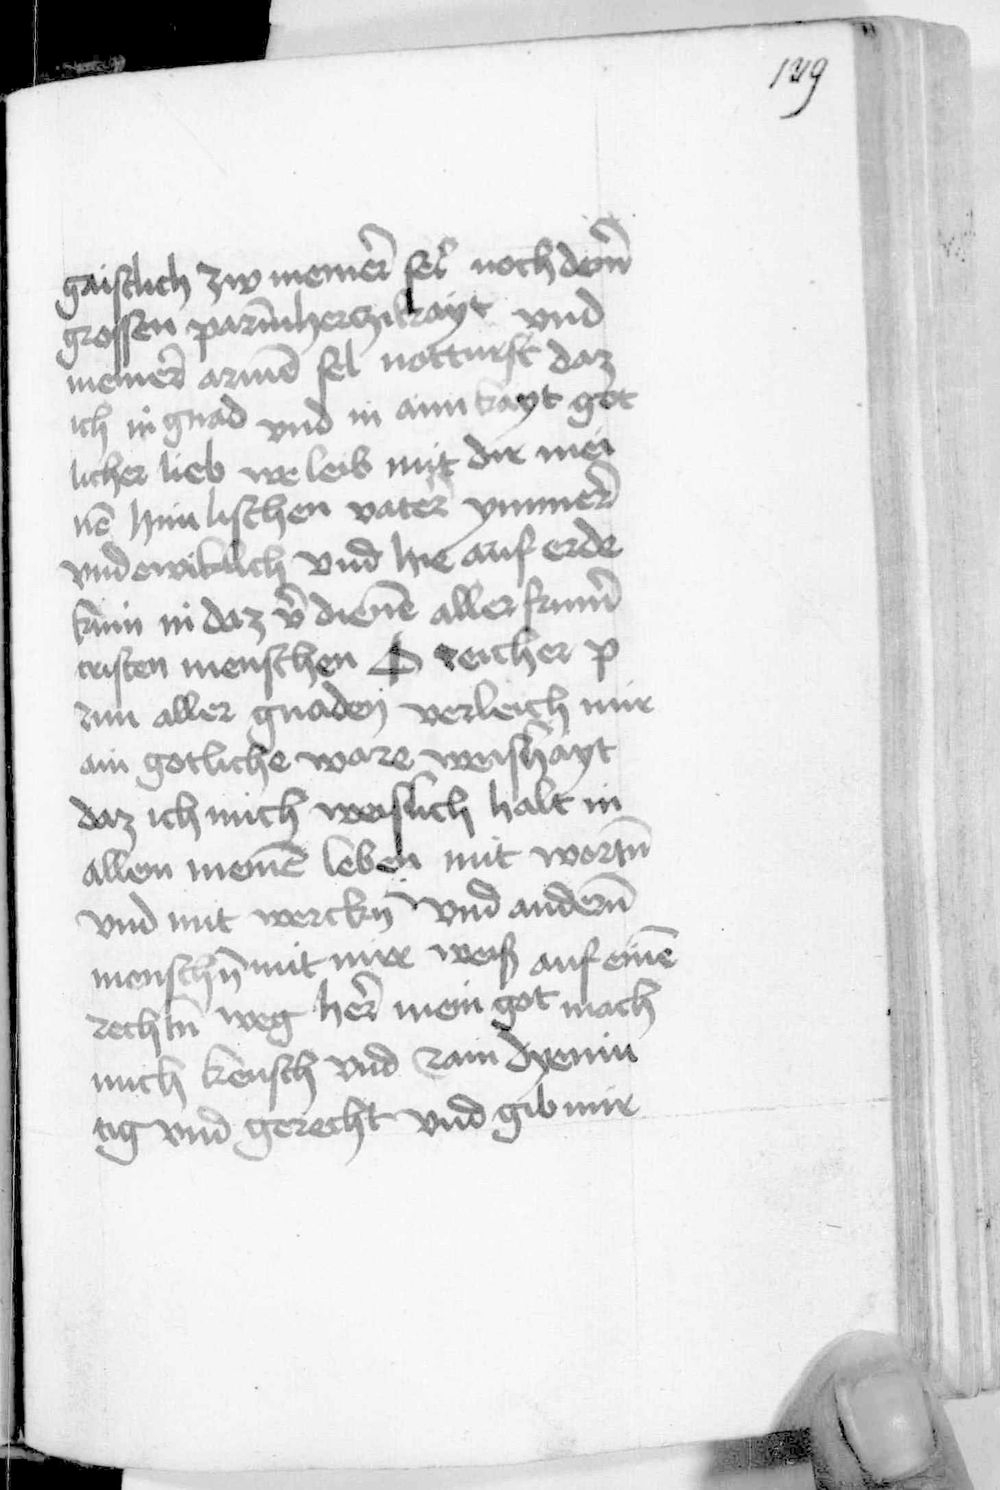 149
gaistlich zw meiner̄ sel noch deyn̄
grossen parm̄herczikayt vnd
meiner̄ armē sel notturft daz
ich in gnad vnd in ainikayt göt
licher lieb weleib mit dir mei
nē himlischen vater ymmer̄
vnd ewiklich vnd hie auf erde
kum in daz v̄dienē aller frum̄
cristen menschen O reicher p
run aller gnaden verleich mir
ain gotliche ware weishayt
daz ich mich weislich halt in
allem meinē leben mit wortn̄
vnd mit werckn̄ vnd andern̄
menschn̄ mit mir weiß auf einē
rechtn̄ weg her̄ mein got mach
mich keusch vnd rain dyemu
tig vnd gerecht vnd gib mir